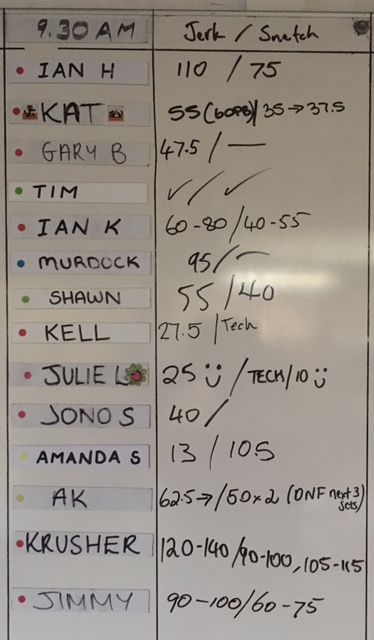 9.30 AM Jerk / Snatch
IAN H 110 / 75
KAT 55 (60PB) / 35 → 37.5
GARY B 47.5 / —
TIM ✓ / ✓
IAN K 60-80 / 40-55
MURDOCK 95 / —
SHAWN 55 / 40
KELL 27.5 / Tech
JULIE L 25 ☺ / TECH / 10 ☺
JONO S 40 /
AMANDA S 13 / 10.5
AK 62.5 → / 50 x 2 (DNF next 3 sets)
KRUSHER 120-140 / 90-100, 105-115
JIMMY 90-100 / 60-75